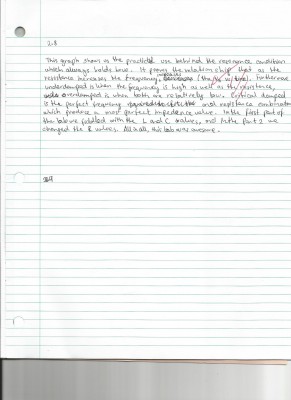 2.8
This graph shows is the practical use behind the resonance condition
which always holds true. It proves the relationship that as the
resistance increases the frequency, increases (the Furthermore
underdamped is when the frequency is high as well as the resistance,
overdamped is when both are relatively low. Critical damped
is the perfect frequency and resistance combination
which produce a most perfect impedance value. In the first part of
the lab we fiddled with the L and C values, and in the part 2 we
changed the R values. All in all, this lab was awesome.